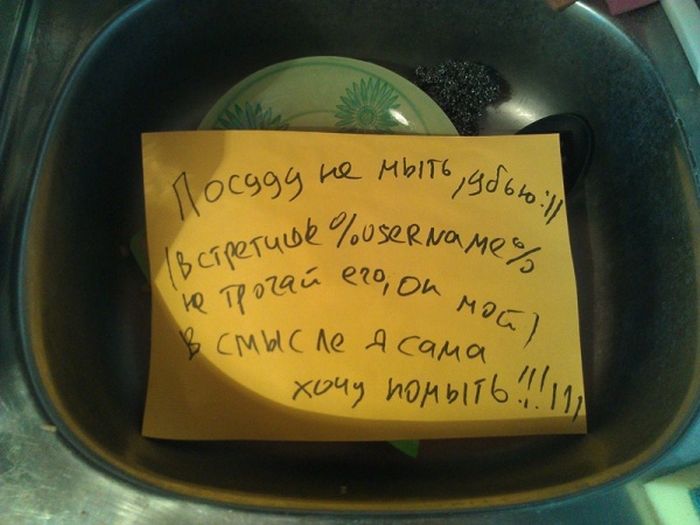 Посуду не мыть, убью:))
(встретишь %username%
не трогай его, он мой)
в смысле я сама
хочу помыть!!!111,